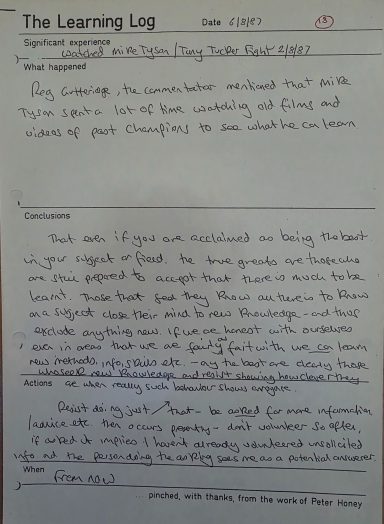 The Learning Log Date 6/8/87 (13)
Significant experience
Watched Mike Tyson / Tony Tucker Fight 2/8/87
What happened
Reg Gutteridge, the commentator mentioned that Mike
Tyson spent a lot of time watching old films and
videos of past champions to see what he can learn
Conclusions
That even if you are acclaimed as being the best
in your subject or field, the true greats are those who
are still prepared to accept that there is much to be
learnt. Those that feel they know all there is to know
on a subject close their mind to new knowledge - and thus
exclude anything new. If we are honest with ourselves
even in areas that we are fairly au fait with we can learn
new methods, info, skills etc. - the best are clearly those
who seek new knowledge and resist showing how clever they
Actions are when really such behaviour shows arrogance.
Resist doing just that - be asked for more information
/advice etc. then occurs presently - don't volunteer so often,
if asked it implies I haven't already volunteered unsolicited
info and the person doing the asking sees me as a potential answerer.
When
From now
... pinched, with thanks, from the work of Peter Honey